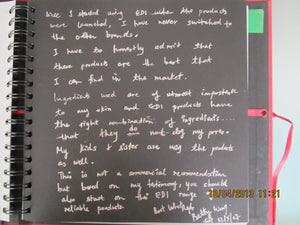 Once I started using EDI when the products
were launched, I have never switched to
the other brands.
I have to honestly admit that
these products are the best that
I can find in the market.
Ingredients used are of utmost importance
to my skin and EDI products have
the right combination of ingredients...
that they do not clog my pores.
My kids & sister are using the products
as well.
This is not a commercial recommendation
but based on my testimony, you should
also start on the EDI range of
reliable products
Best Wishes
Betty
18/04/2013 11:21